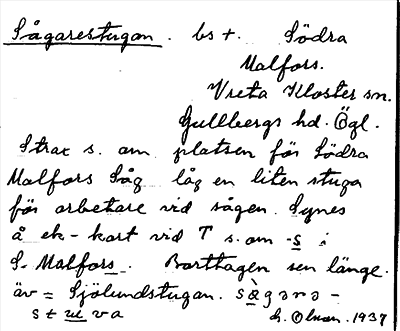 Sågarestugan. bst. Södra
Malfors.
Vreta Kloster sn.
Gullbergs hd. Ögl.
Strax s. om platsen för Södra
Malfors Såg låg en liten stuga
för arbetare vid sågen. Synes
å ek-kart vid T s. om -s i
S. Malfors. Borttagen sen länge.
äv = Sjölundstugan. sàgarə-
stuva
1937